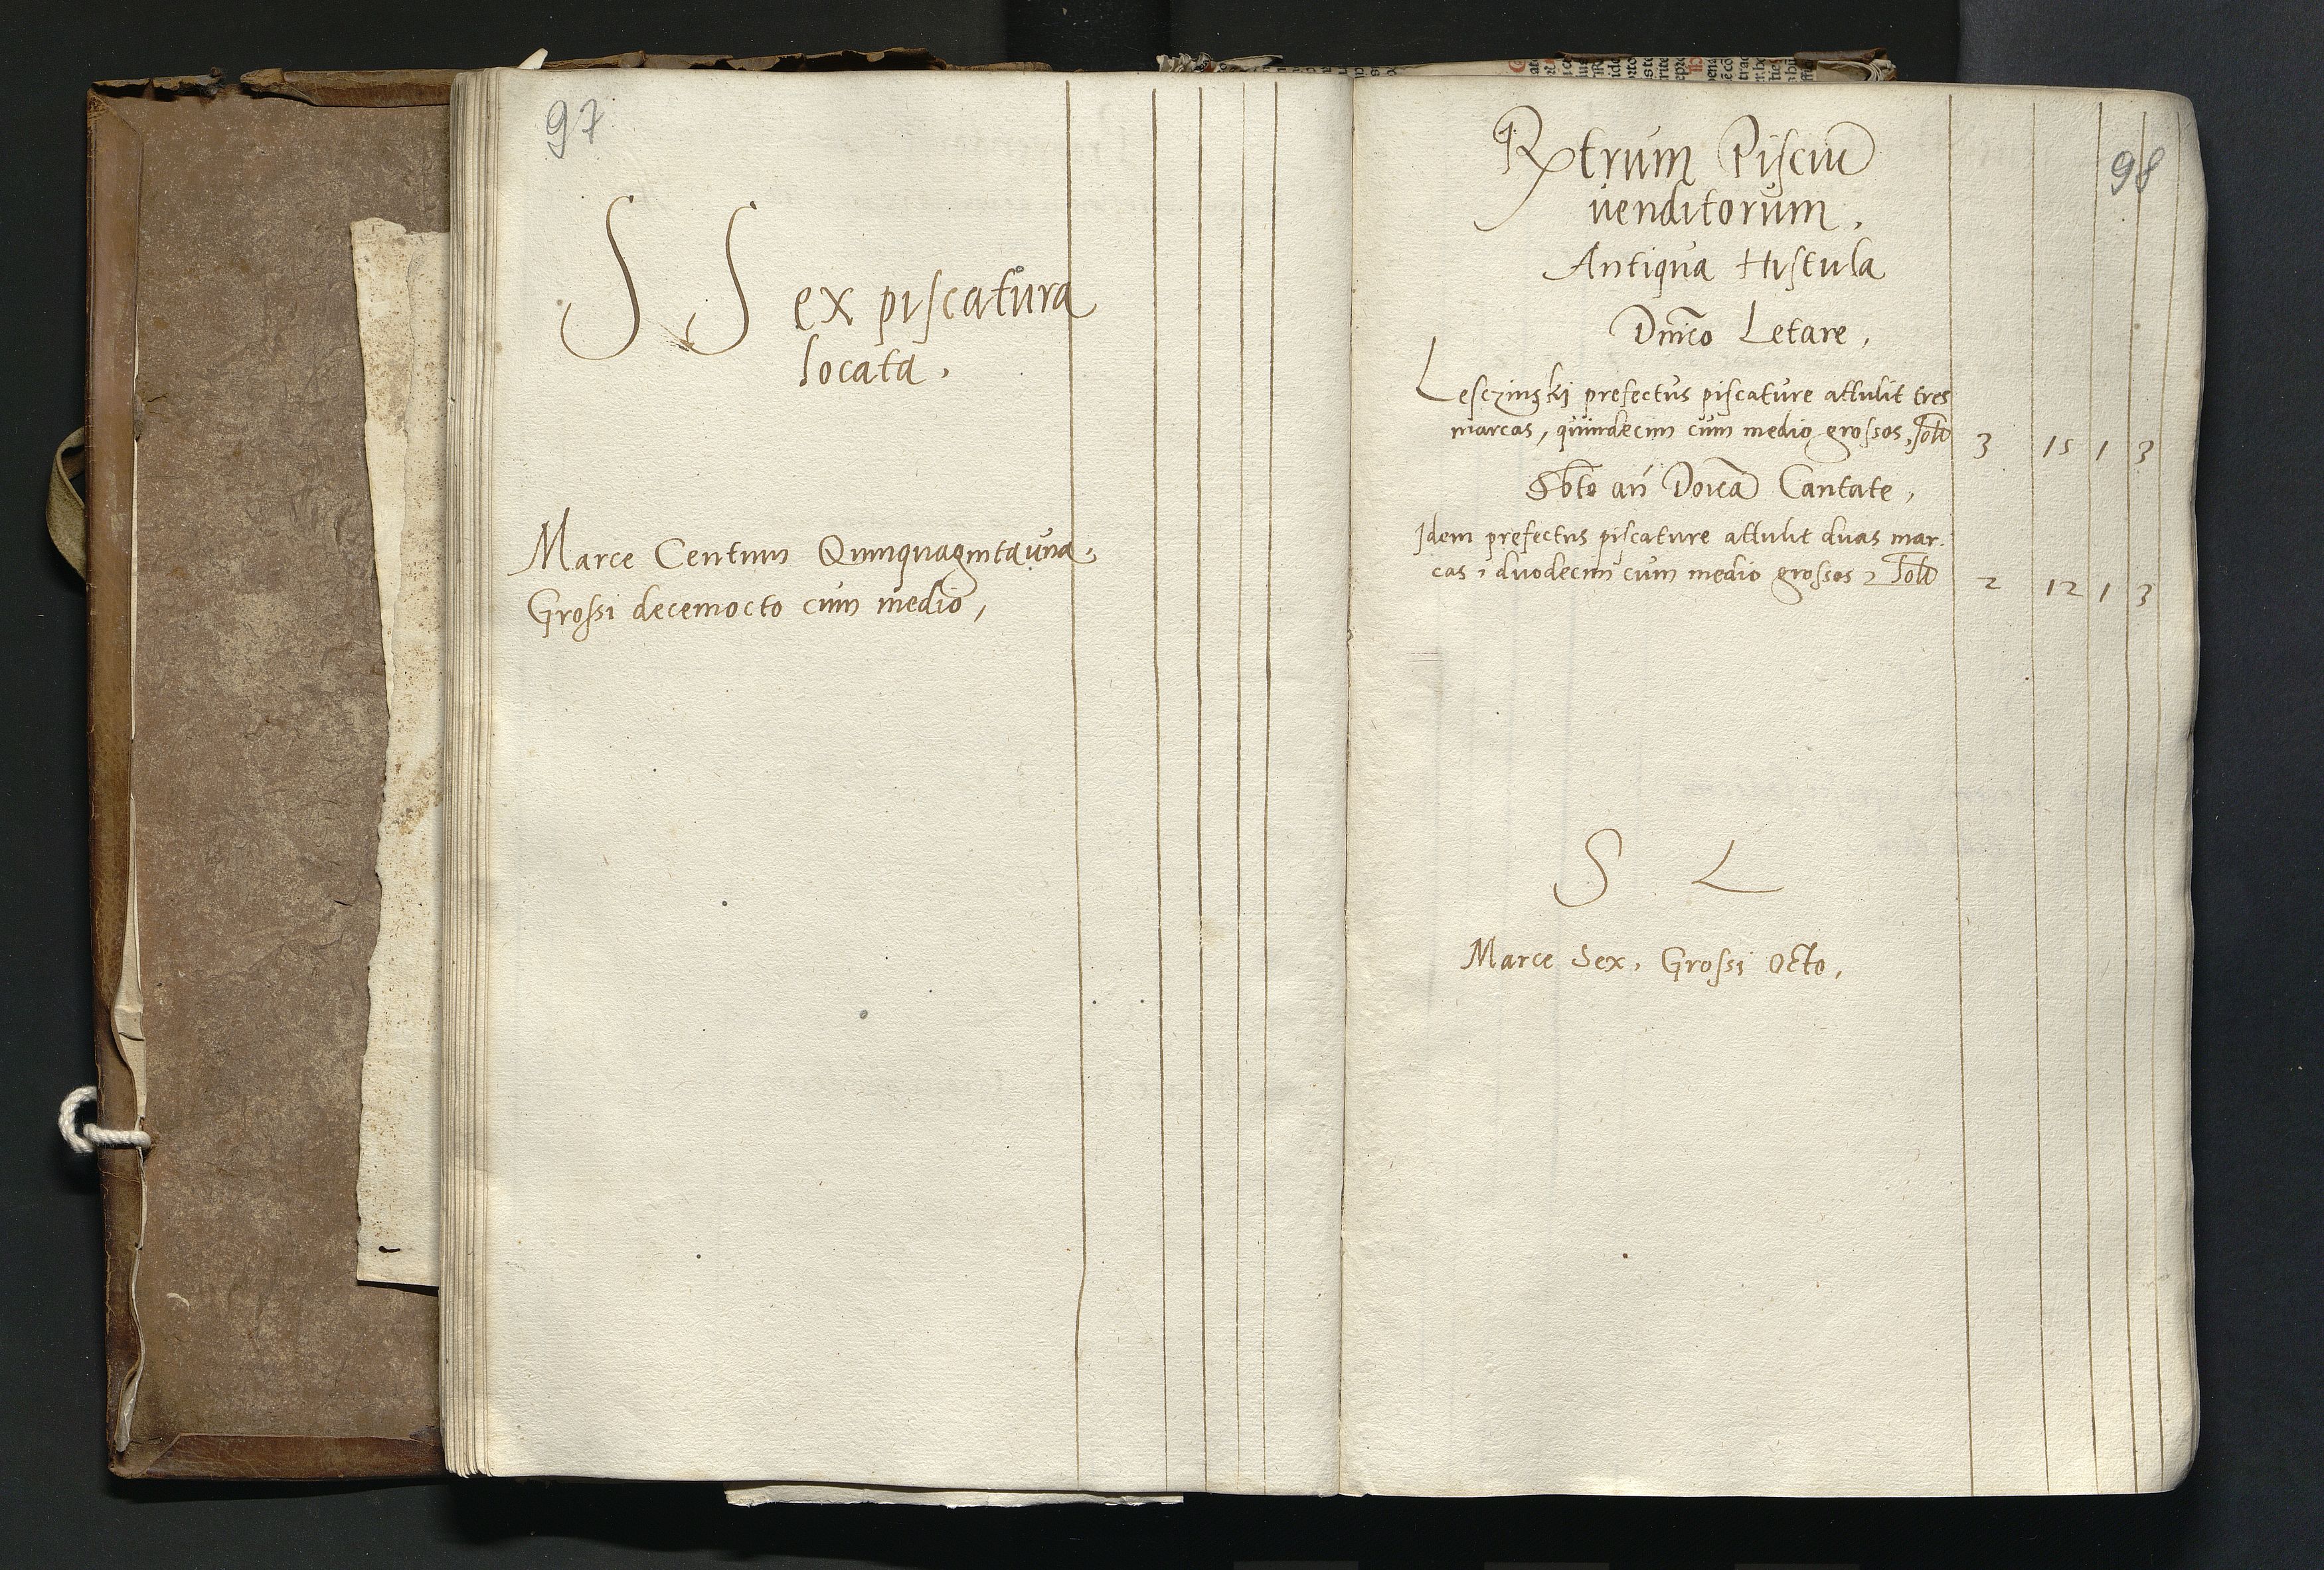 97
S S ex piscatura
locata.
Marce Centum Quinquaginta una,
Grossi decemocto cum medio,
98
Rxtrum Pisciū
venditorum.
Antiqua Histula
Dnico Letare,
Lesczinskij prefectus piscature attulit tres
marcas, quindecim cum medio grossos, sol 3 15 1 3
Sbto añ Doicā Cantate,
Idem prefectus piscature attulit duas mar.
cas, duodecim cum medio grossos, sol 2 12 1 3
S L
Marce Sex, Grossi octo,